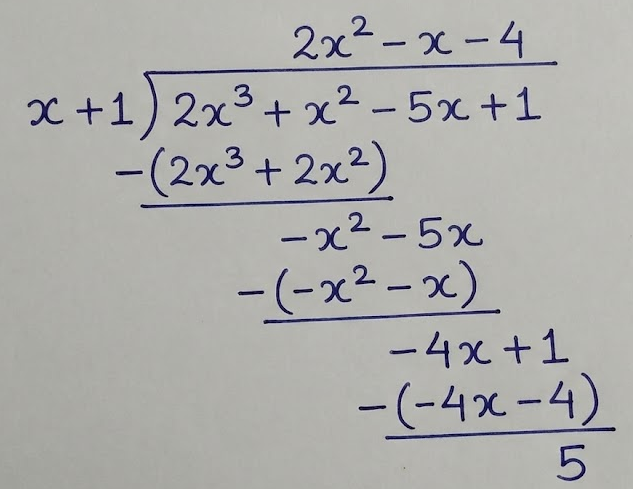 2x² - x - 4
x + 1 ) 2x³ + x² - 5x + 1
-(2x³ + 2x²)
-x² - 5x
-(-x² - x)
-4x + 1
-(-4x - 4)
5